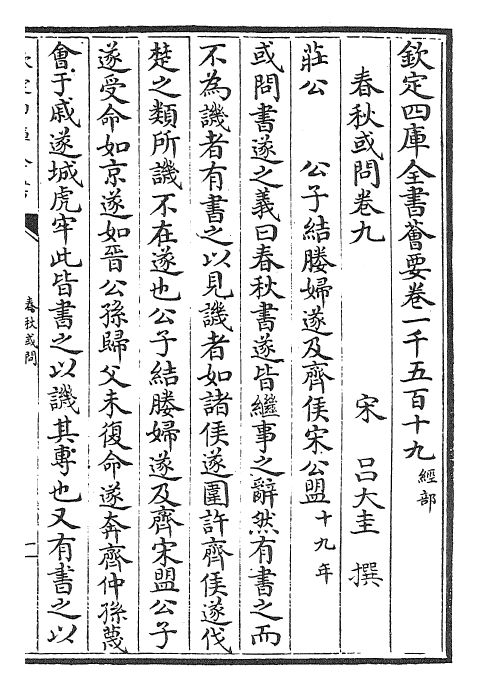 欽定四庫全書薈要卷一千五百十九 經部
春秋或問卷九 宋 呂大圭 撰
莊公 公子結媵婦遂及齊侯宋公盟 十九年
或問書遂之義曰春秋書遂皆繼事之辭然有書之而
不為譏者有書之以見譏者如諸侯遂圍許齊侯遂伐
楚之類所譏不在遂也公子結媵婦遂及齊宋盟公子
遂受命如京遂如晉公孫歸父未復命遂奔齊仲孫蔑
會于戚遂城虎牢此皆書之以譏其專也又有書之以
春秋或問
一